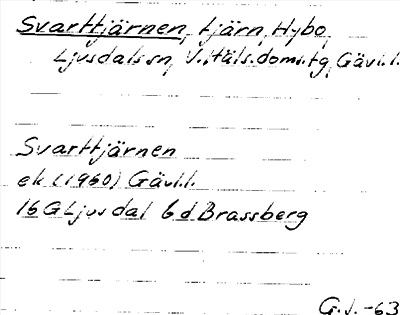 Svarttjärnen, tjärn, Hybo,
Ljusdals sn, V. Häls. doms. tg, Gävl.l.
Svarttjärnen
ek (1960) Gävl.l.
16G Ljusdal 6d Brassberg
G.J.-63